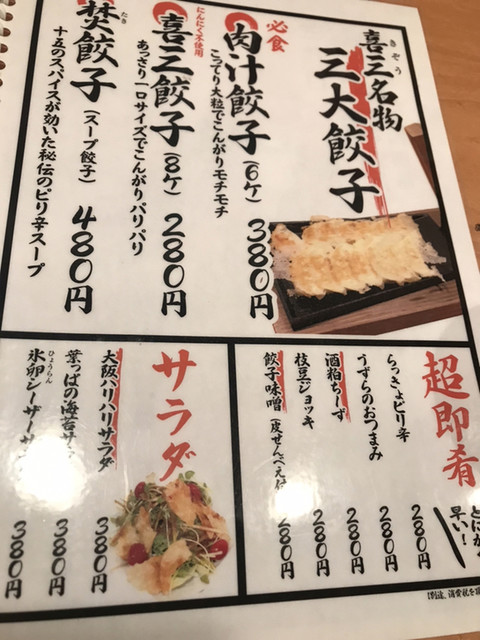 喜三名物
きぞう
三大餃子
必食
肉汁餃子(6ケ) 380円
こってり大粒でこんがりモチモチ
にんにく不使用
喜三餃子(8ケ) 280円
あっさり一口サイズでこんがりパリパリ
焚餃子(スープ餃子) 480円
たき
十五のスパイスが効いた秘伝のピリ辛スープ
超即肴
とにかく
早い!
らっきょピリ辛 280円
うずらのおつまみ 280円
酒粕ちーず 280円
枝豆ジョッキ 280円
餃子味噌 280円
サラダ
大阪パリパリサラダ 380円
葉っぱの海苔サ 380円
ひょうらん
氷卵シーザーサ 380円